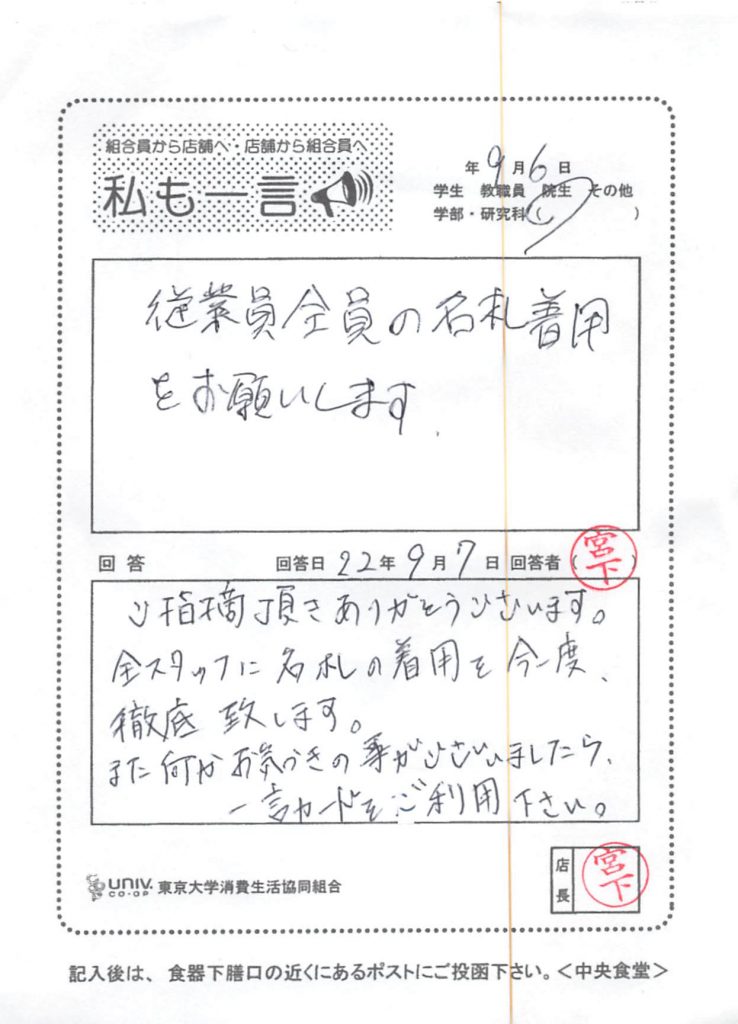 組合員から店舗へ・店舗から組合員へ
私も一言
年9月6日
学生 教職員 院生 その他
学部・研究科( )
従業員全員の名札着用
をお願いします.
回答 回答日 22年9月7日 回答者(宮下)
ご指摘頂きありがとうございます。
全スタッフに名札の着用を今一度、
徹底致します。
また何かお気づきの事がございましたら、
一言カードをご利用下さい。
UNIV. CO-OP 東京大学消費生活協同組合
店長 宮下
記入後は、食器下膳口の近くにあるポストにご投函下さい。<中央食堂>